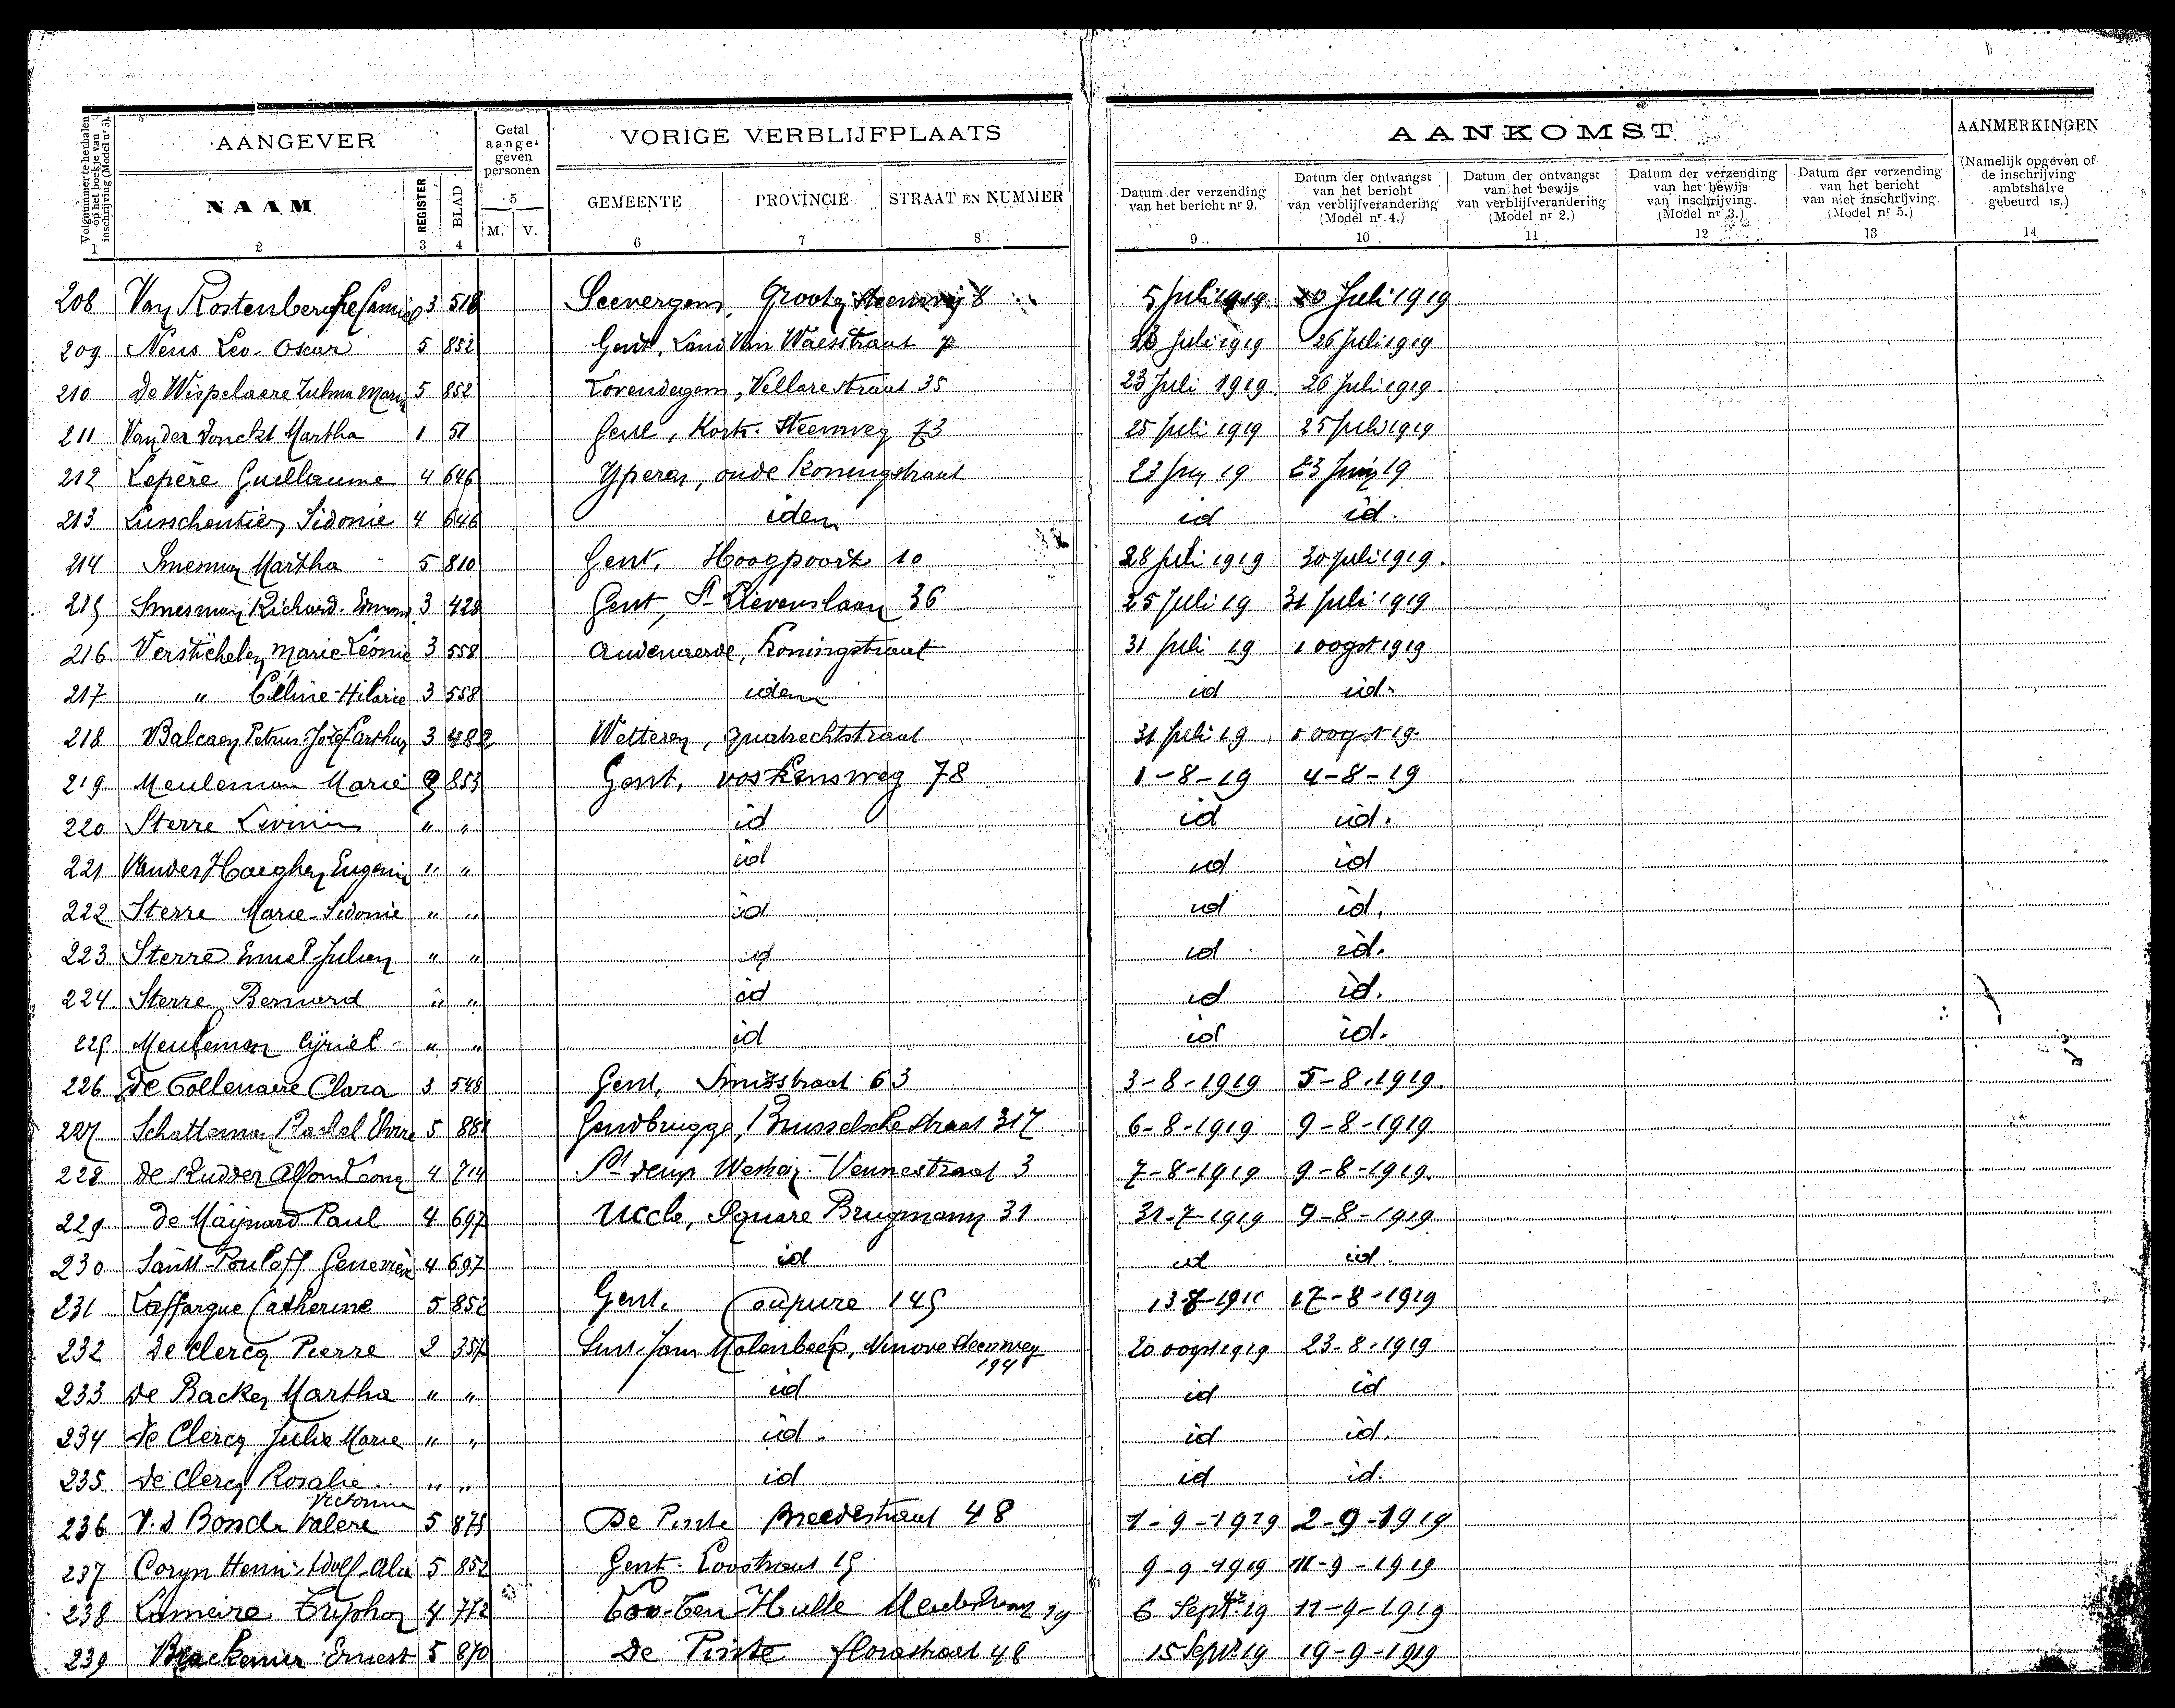 AANGEVER
Getal aangegeven personen
VORIGE VERBLIJFPLAATS
AANKOMST
AANMERKINGEN
Volgnummer te herhalen op het boekje van inschrijving (Model nr 3).
NAAM
REGISTER
BLAD
5
M. V.
GEMEENTE
PROVINCIE
STRAAT EN NUMMER
Datum der verzending van het bericht nr 9.
Datum der ontvangst van het bericht van verblijfverandering (Model nr 4.)
Datum der ontvangst van het bewijs van verblijfverandering (Model nr 2.)
Datum der verzending van het bewijs van inschrijving. (Model nr 3.)
Datum der verzending van het bericht van niet inschrijving. (Model nr 5.)
(Namelijk opgeven of de inschrijving ambtshalve gebeurd is.)
1 2 3 4 6 7 8 9 10 11 12 13 14
208 Van Kostenberghe Camiel 3 518 Seevergem, Groote steenweg 8 5 Juli 1919 20 Juli 1919
209 Neus Leo-Oscar 5 852 Gent, Land Van Waesstraat 7 23 Juli 1919 26 Juli 1919
210 De Wispelaere Zulma Maria 5 852 Lovendegem, Vellarestraat 35 23 Juli 1919 26 Juli 1919
211 Van der Donckt Martha 1 51 Gent, Kortr. Steenweg 73 25 Juli 1919 25 Juli 1919
212 Lepère Guillaume 4 646 Yperen, oude Koningstraat 23 19 23 19
213 Sidonie 4 646 idem id id.
214 Smesman Martha 5 810 Gent, Hoogpoort 10 28 Juli 1919 30 Juli 1919.
215 Smesman Richard. Edmond 3 428 Gent, St Lievenslaan 36 25 Juli 19 31 Juli 1919
216 Verstichelen Marie-Léonie 3 558 Audenaerde, Koningstraat 31 Juli 19 1 oogst 1919
217 " Céline-Hilarie 3 558 idem id id.
218 Balcaen Petrus-Jozef Arthur 3 482 Wetteren, Quatrechtstraat 31 Juli 19 1 oogst 19.
219 Meuleman Marie 853 Gent, voskensweg 78 1-8-19 4-8-19
220 Sterre Livinus " " id id id.
221 Vander Haeghen Eugenie " " id id id
222 Sterre Marie-Sidonie " " id id id.
223 Sterre Emiel-Julien " " id id id.
224 Sterre Bernard " " id id id.
225 Meuleman Cyriel " " id id id.
226 De Collenaere Clara 3 548 Gent, Smisstraat 63 3-8-1919 5-8-1919.
227 Schatteman Rachel Elvire 5 881 Gendbrugge, Brusselsche straat 317 6-8-1919 9-8-1919
228 De Ridder Alfons Leon 4 714 St Westrem Vennestraat 3 7-8-1919 9-8-1919.
229 De Maynard Paul 4 697 Uccle, Square Brugmann 31 31-7-1919 9-8-1919
230 Saint-Poulof Geneviève 4 697 id id id.
231 Laffargue Catherine 5 852 Gent, Coupure 145 13-8-191 17-8-1919
232 De Clercq Pierre 2 357 Sint-Jans Molenbeek, Ninove steenweg 194 20 oogst 1919 23-8-1919
233 De Backer Martha " " id id id
234 De Clercq Julie Marie " " id. id id.
235 De Clercq Rosalie " " id id id.
236 V.d Bonde Valere Victorina 5 875 De Pinte Breedestraat 48 1-9-1919 2-9-1919
237 Coryn Henri-Adolf-Alex 5 852 Gent. Loostraat 15 9-9-1919 11-9-1919
238 Lameire Tryphon 4 772 Loo-Ten-Hulle 19 6 Septbr. 19 11-9-1919
239 Brackenier Ernest 5 870 De Pinte florastraat 48 15 Septr 19 19-9-1919